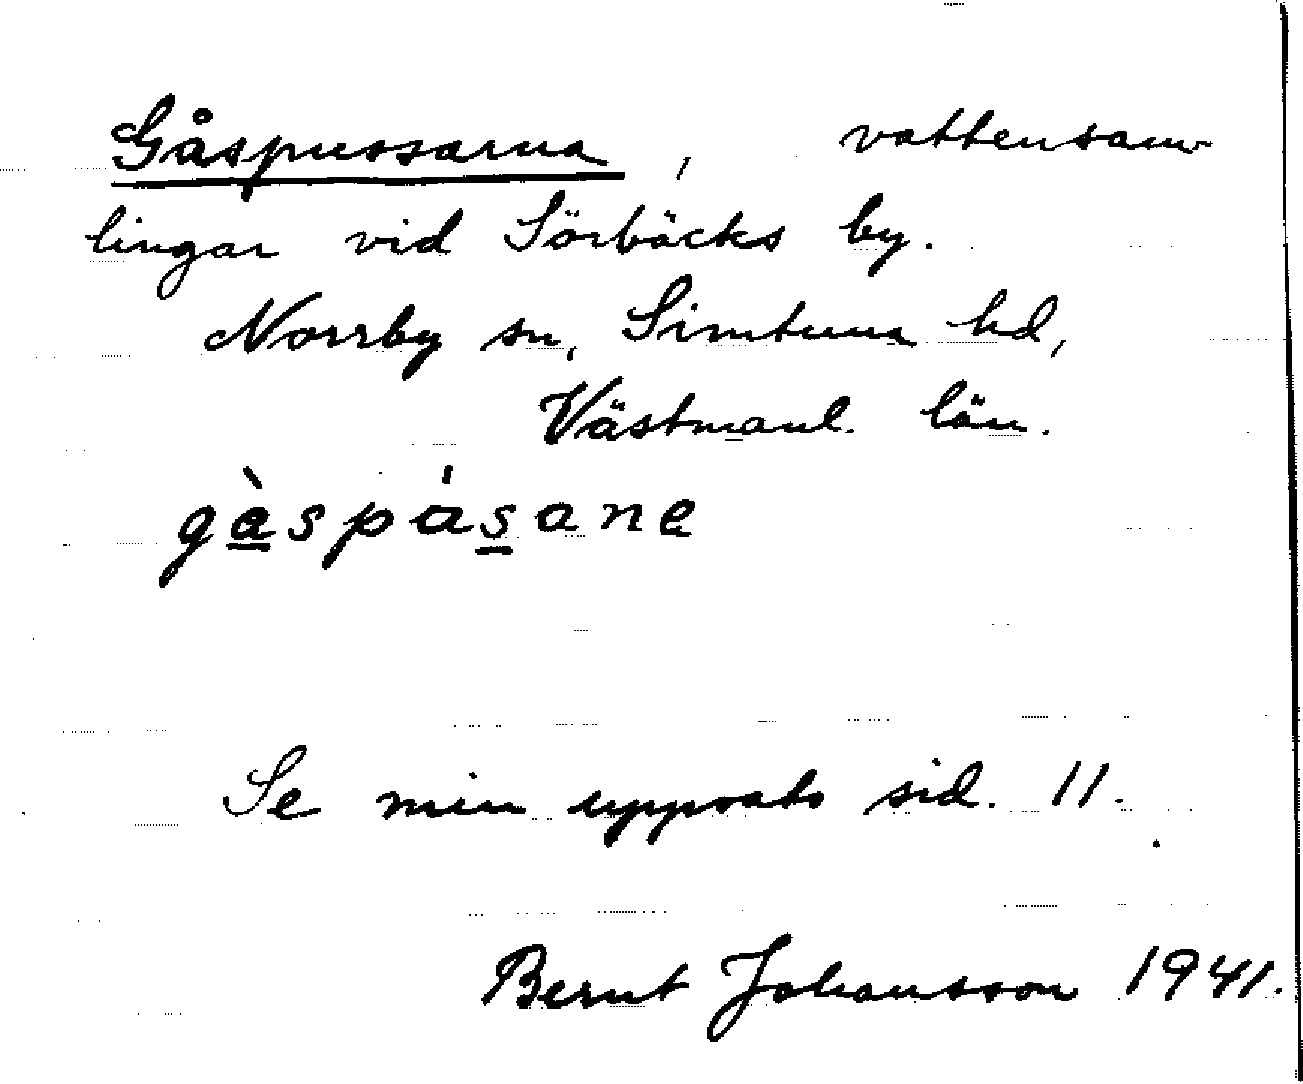 Gåspussarna, vattensam-
lingar vid Sörbäcks by.
Norrby sn, Simtuna hd,
Västmanl. län.
gàspásane
Se min uppsats sid. 11.
Bernt Johansson 1941.